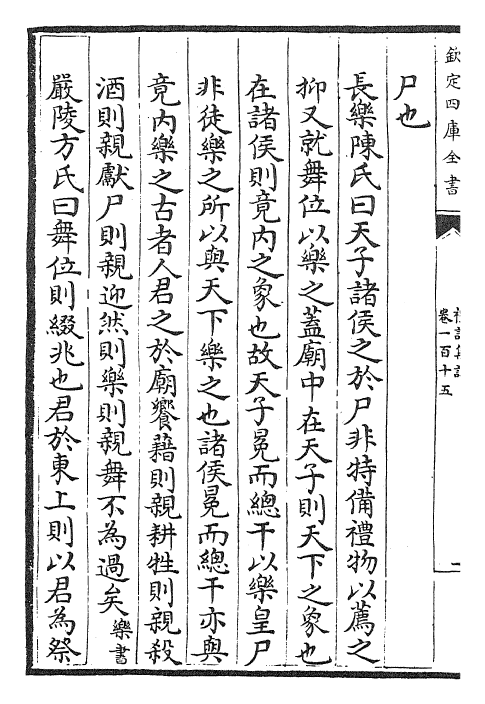 欽定四庫全書
卷一百十五
尸也
長樂陳氏曰天子諸侯之於尸非特備禮物以薦之
抑又就舞位以樂之蓋廟中在天子則天下之象也
在諸侯則竟内之象也故天子冕而緫干以樂皇尸
非徒樂之所以與天下樂之也諸侯冕而緫干亦與
竟内樂之古者人君之於廟饗藉則親耕牲則親殺
酒則親獻尸則親迎然則樂則親舞不為過矣樂書
嚴陵方氏曰舞位則綴兆也君於東上則以君為祭